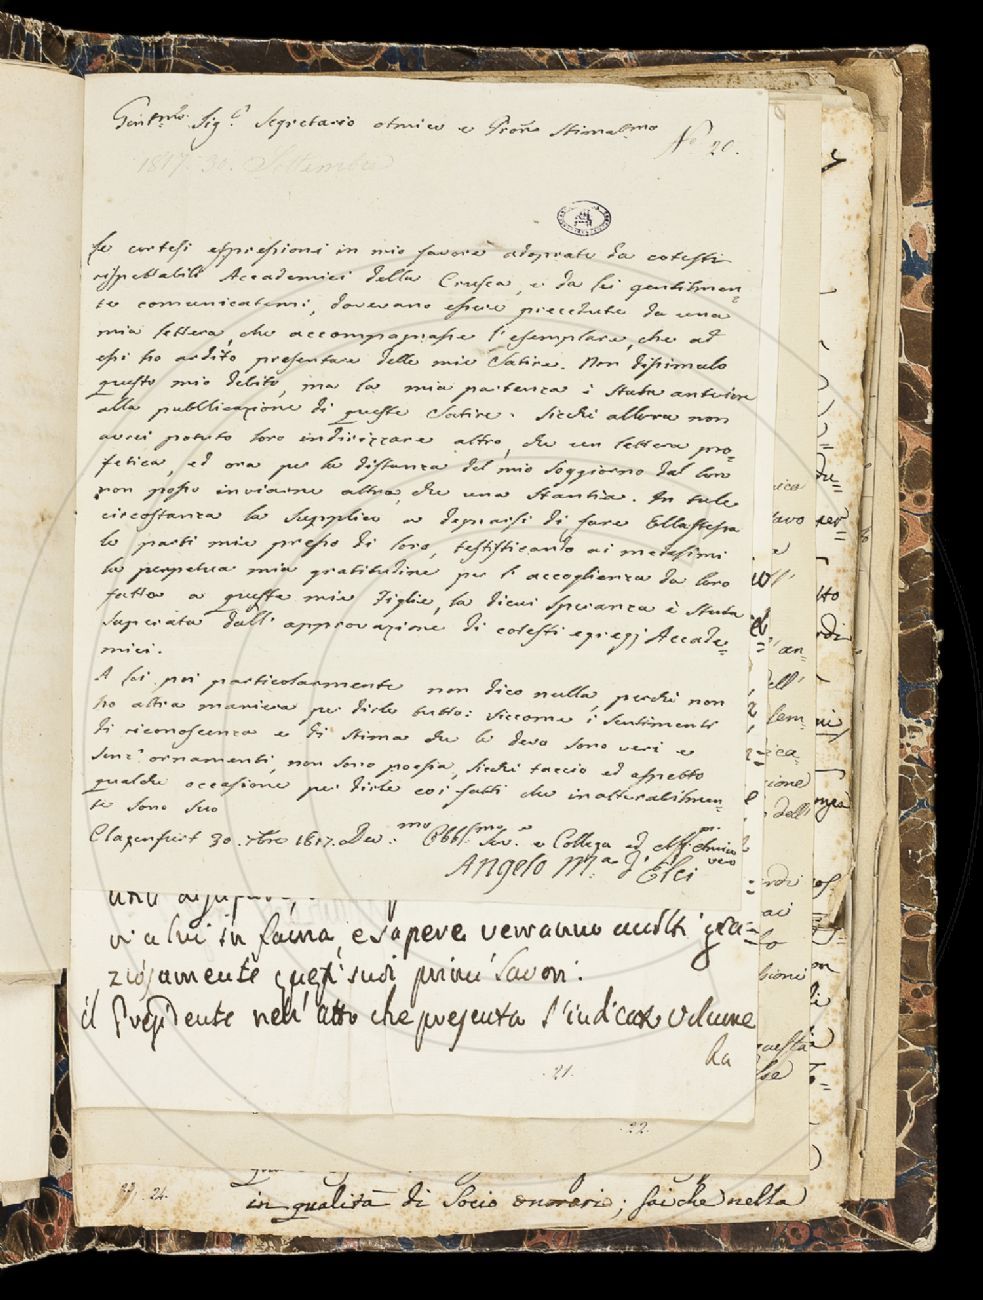 Gent.mo Sig.e Segretario Amico e Pron̄e Stimat.mo
N.o 20.
1817. 30. Settembre
Le cortesi espressioni in mio favore adoprate da cotesti
rispettabili Accademici della Crusca, e da lei gentilmen=
te comunicatemi, dovevano essere precedute da una
mia lettera, che accompagnasse l'esemplare, che ad
essi ho ardito presentare delle mie Satire. Non dissimulo
questo mio delitto, ma la mia partenza è stata anteriore
alla pubblicazione di queste Satire. Sicchè allora non
avrei potuto loro indirizzare altro, che un lettera pro=
fetica, ed ora per la distanza del mio soggiorno dal loro
non posso inviarne altra, che una stantia. In tale
circostanza la supplico a degnarsi di fare Ella stessa
le parti mie presso di loro, testificando ai medesimi
la perpetua mia gratitudine per l'accoglienza da loro
fatta a queste mie Figlie, la di cui speranza è stata
superata dall'approvazione di cotesti egregj Accade=
mici.
A lei poi particolarmente non dico nulla, perchè non
ho altra maniera per dirle tutto: siccome i sentimenti
di riconoscenza e di stima che le devo sono veri e
senz'ornamenti, non sono poesia, sicchè taccio ed aspetto
qualche occasione per dirle coi fatti che inalterabilmen=
te sono suo
Clagenfurt 30. 7bre 1817. Dev.mo Obbl.mo Ser.e e Collega ed Aff. Amico
vero
Angelo M.a d'Elci
vi a lui in fama, e sapere verranno molti gra=
ziosamente questi suoi primi lavori.
il Presidente nell'atto che presenta l'indicato volume
ha
21.
22.
24.
in qualità di Socio onorario; fai che nella